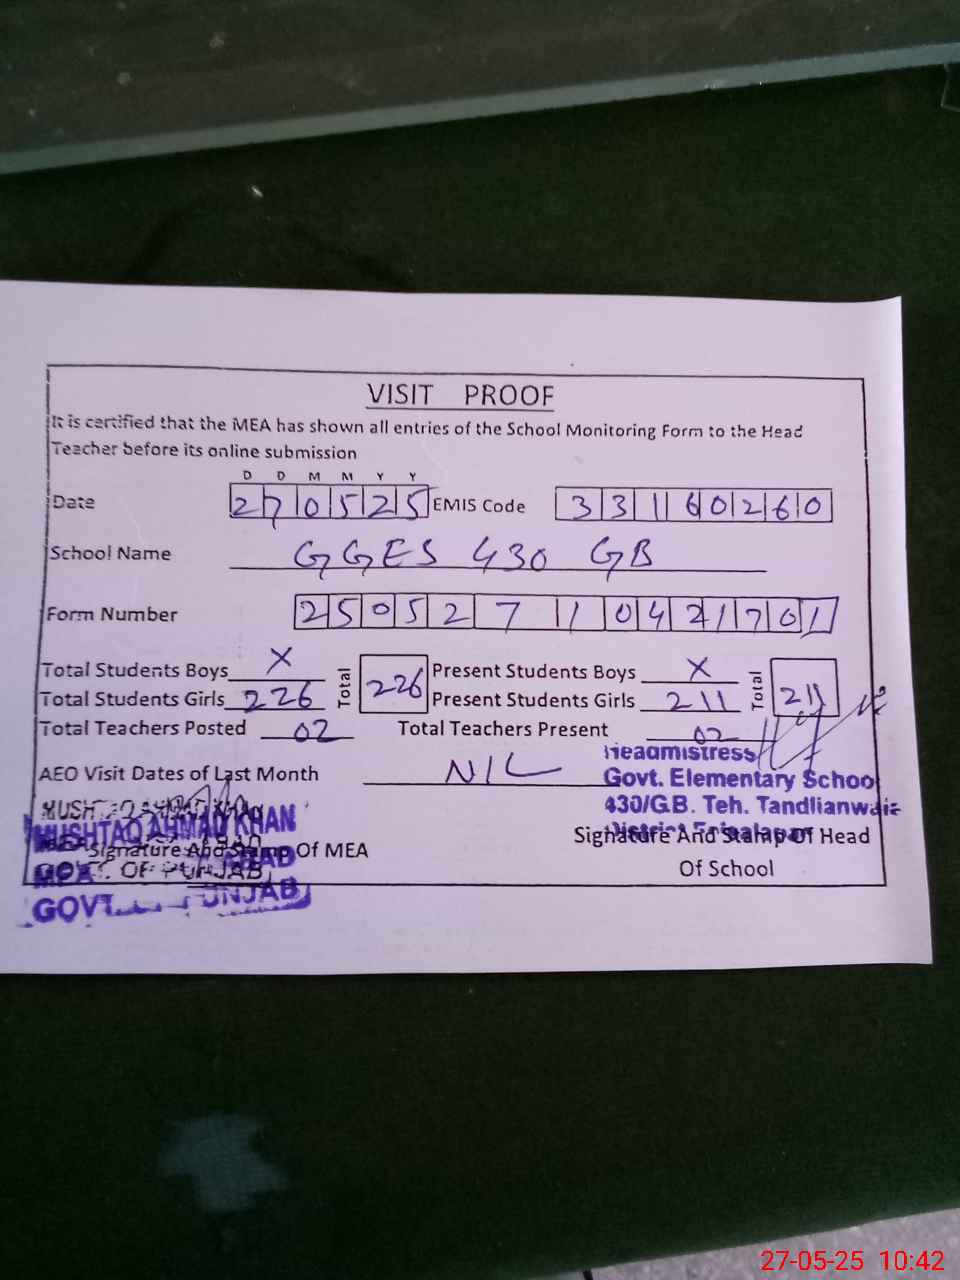 VISIT PROOF
It is certified that the MEA has shown all entries of the School Monitoring Form to the Head
Teacher before its online submission
D D M M Y Y
Date 270525 EMIS Code 33160260
School Name GGES 430 GB
Form Number 25052710421701
Total Students Boys X Total 226 Present Students Boys X Total 211
Total Students Girls 226 Present Students Girls 211
Total Teachers Posted 02 Total Teachers Present 02
AEO Visit Dates of Last Month NIL
Headmistress
Govt. Elementary School
430/G.B. Teh. Tandlianwala
District Faisalabad
MUSHTAQ AHMAD KHAN
MUSHTAQ AHMAD KHAN
Signature And Stamp Of MEA
Signature And Stamp Of Head
Of School
MEA
GOVT. OF PUNJAB
GOVT. PUNJAB
27-05-25 10:42